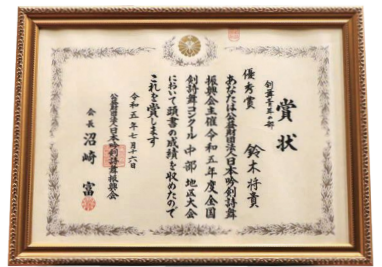 賞状
剣舞青年の部
優秀賞 鈴木将貴
あなたは公益財団法人日本吟剣詩舞
振興会主催令和五年度全国
剣詩舞コンクール中部地区大会
において頭書の成績を収めたので
これを賞します
令和五年七月十六日
公益財団法人日本吟剣詩舞振興会
会長 沼崎 富